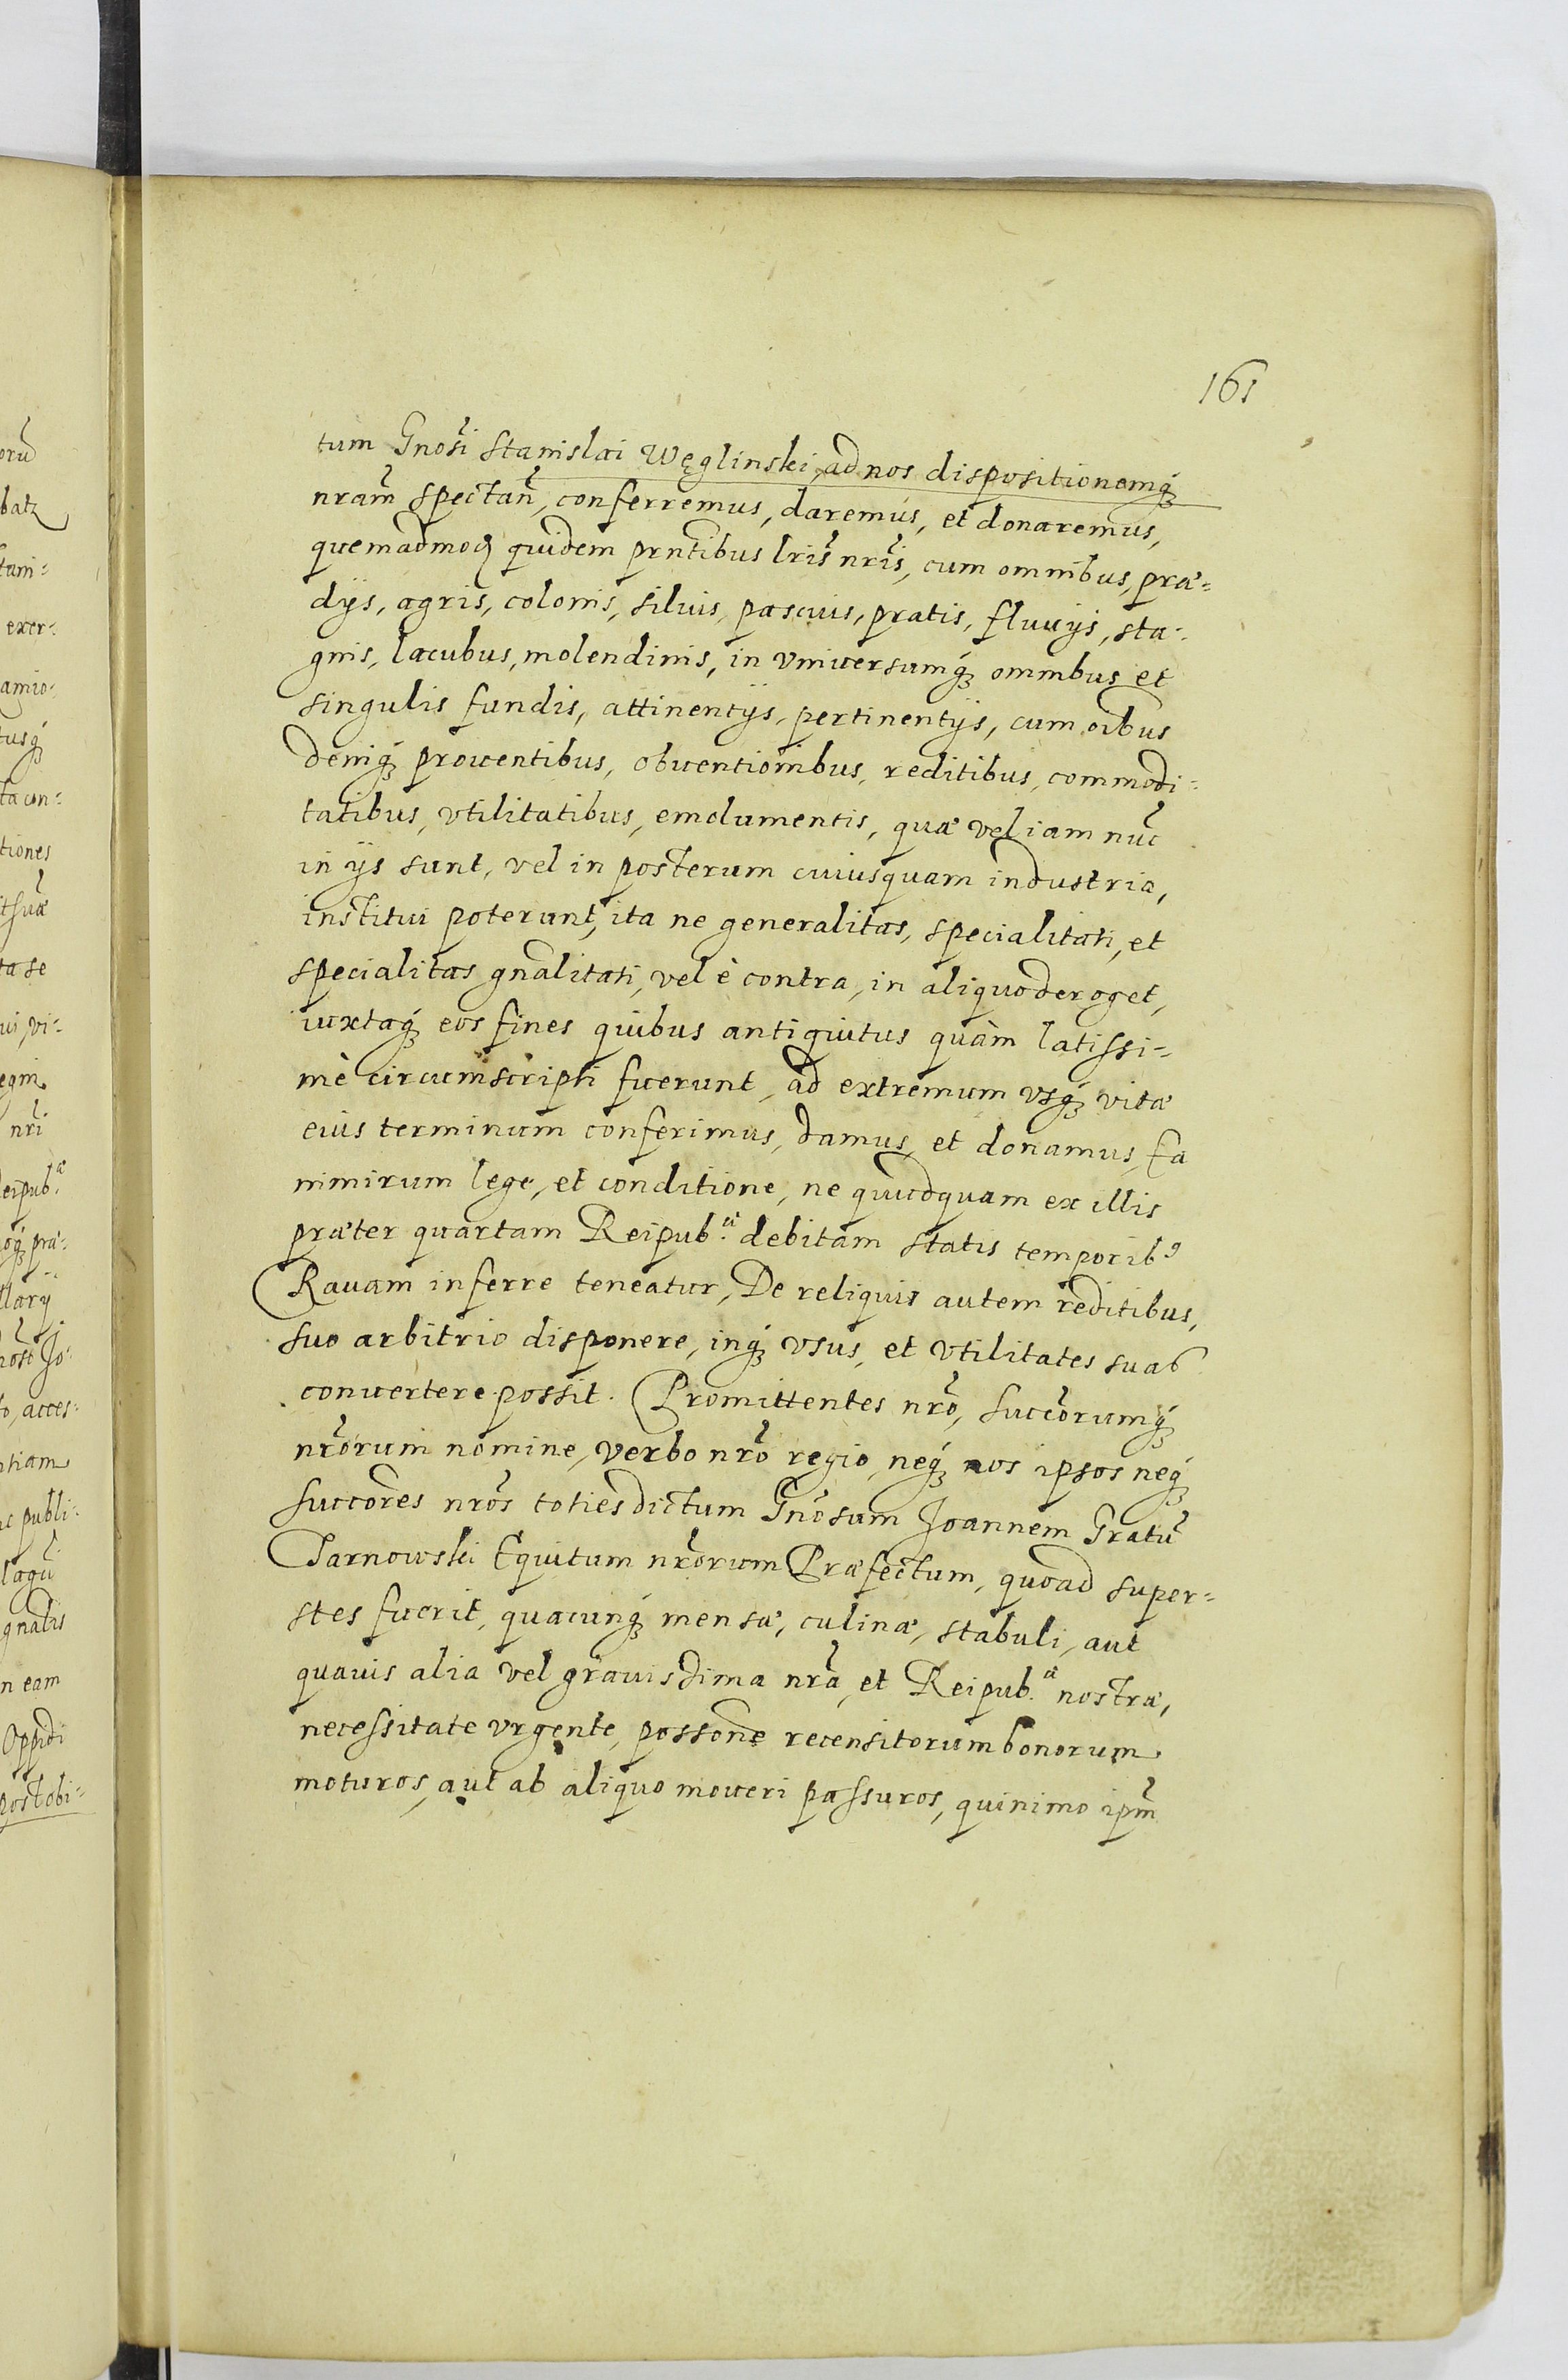 161
tum Gnosi Stanislai Węglinski, ad nos dispositionemq́ꝫ
nram̃ spectañ, conferremus, daremus, et donaremus,
quemadmoꝗ quidem prntibus lris̃ nris̃, cum omnibus, præ=
dijs, agris, colonis, siluis, pascuis, pratis, fluuijs, sta=
gnis, lacubus, molendinis, in vniuersumq́ꝫ omnibus et
singulis fundis, attinentijs, pertinentijs, cum oibus
deniq́ꝫ prouentibus, obuentionibus, reditibus, commodi=
tatibus, vtilitatibus, emolumentis, quæ vel iam nuc̃
in ijs sunt, vel in posterum cuiusquam industria,
institui poterunt, ita ne generalitas, specialitati, et
specialitas gnalitati, vel è contra, in aliquo deroget,
iuxtaq́ꝫ eos fines quibus antiquitus quàm latissi=
mè circumscripti fuerunt, ad extremum vsq́ꝫ vitæ
eius terminum conferimus, damus, et donamus, Ea
nimirum lege, et conditione, ne quicdquam ex illis
præter quartam Reipub.æ debitam statis temporibꝰ
Rauam inferre teneatur, De reliquis autem reditibus,
suo arbitrio disponere, inq́ꝫ vsus, et vtilitates suas
conuertere possit. Promittentes nrõ, succõrumq́ꝫ
nrõrum nomine, verbo nrõ regio, neq́ꝫ nos ipsos neq́ꝫ
succõres nrõs toties dictum Gnõsum Joannem Gratũ
Tarnowski Equitum nrõrum Præfectum, quoad super=
stes fuerit, quacunq́ꝫ mensæ, culinæ, stabuli, aut
quauis alia vel grauissima nrã, et Reipub.æ nostræ,
necessitate vrgente, possone recensitorum bonorum
moturos, aut ab aliquo moueri passuros, quinimo ipm̃